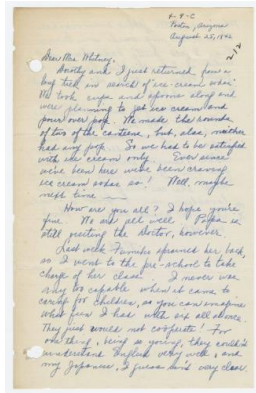 4-9-C
Poston, Arizona
August 25, 1942
212
Dear Mrs. Whitney:
Dorothy and I just returned from a
big trek in search of "ice-cream when"
We took cups and spoons along and
were planning to get ice cream and
pour over pop. We made the rounds
of two of the canteens, but, alas, neither
had any pop. So we had to be satisfied
with ice cream only. Ever since
we've been here we've been craving
ice cream sodas so! Well, maybe
next time
How are you all? I hope you're
fine. We are all well. Papa is
still visiting the doctor, however.
Last week Fumiko sprained her back,
so I went to the pre-school to take
charge of her class. I never was
any too capable when it came to
caring for children, so you can imagine
what fun I had with six all alone.
They just would not cooperate! For
one thing, being so young, they couldn't
understand English very well, and
my Japanese, I guess isn't very clear.